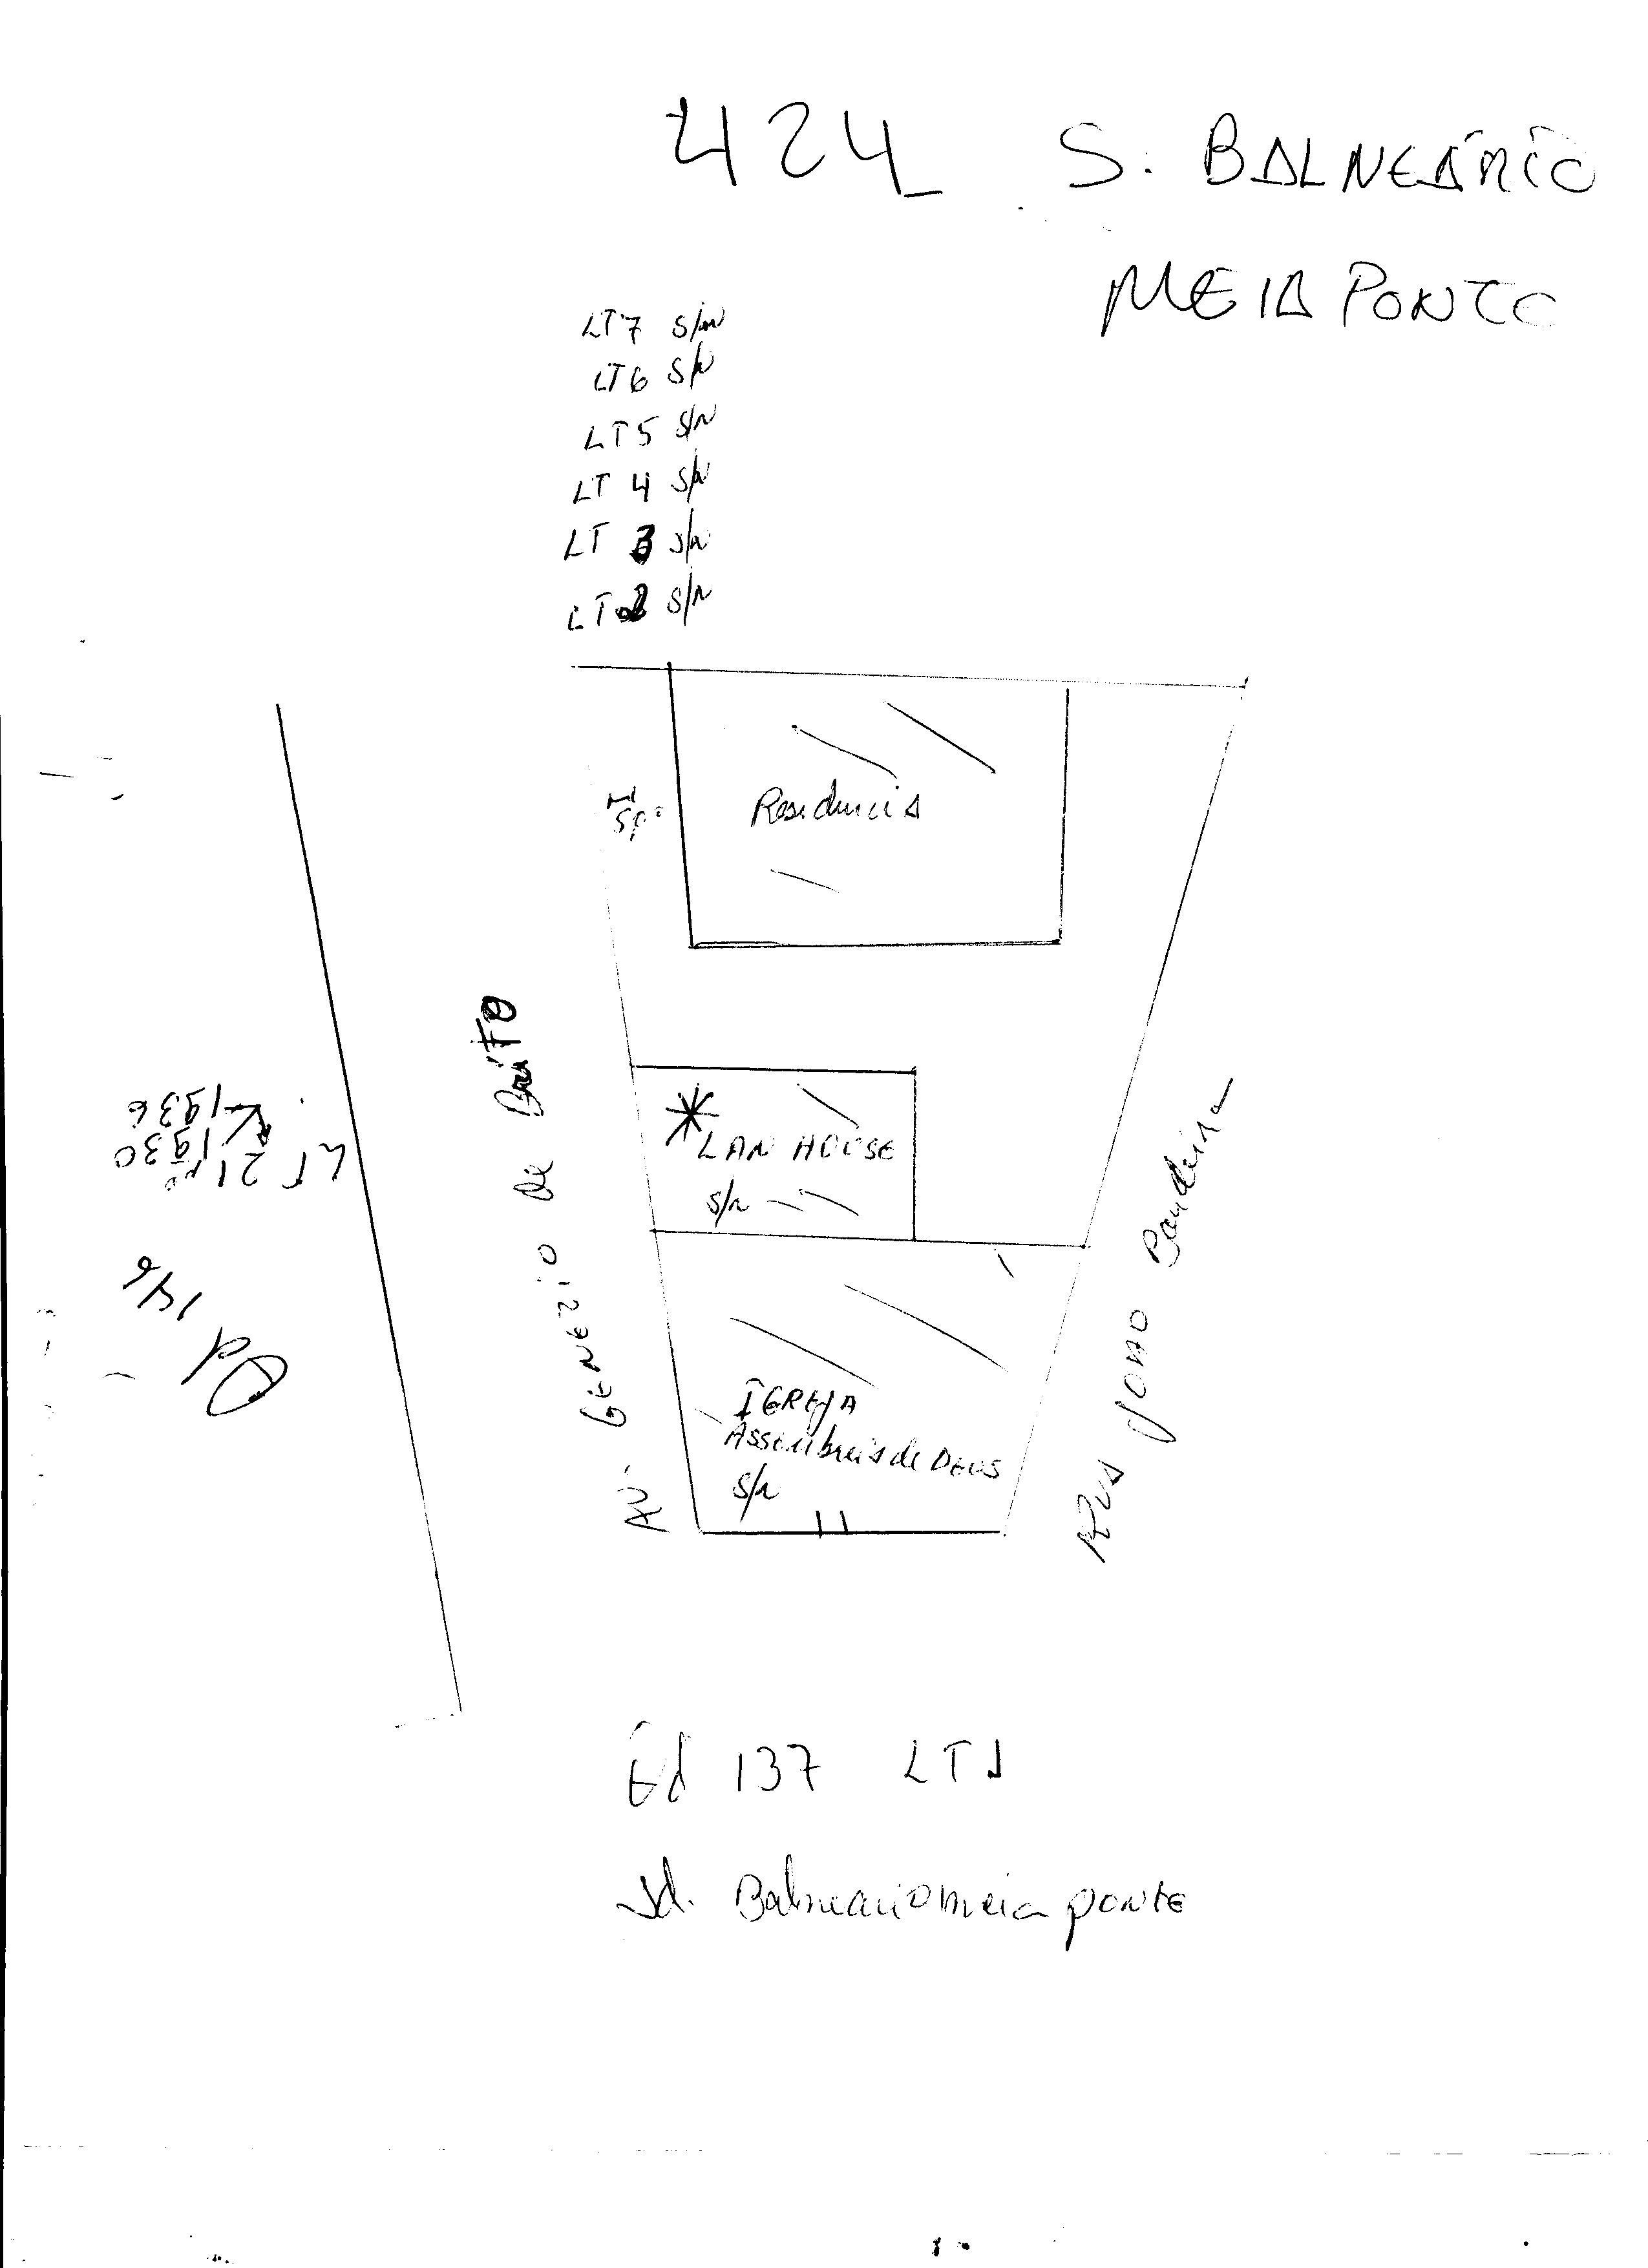 424 S. BALNEÁRIO
MEIA PONTE
LT7 S/N
LT6 S/N
LT5 S/N
LT 4 S/N
LT 3 S/N
LT 2 S/N
Residencia
AV. GENÉZIO DE BRITO
LAN HOUSE
S/N
IGREJA
Assembleia de DEUS
S/N
RUA JOÃO Bandeira
Qd 146
LT 21 nº 1930
1936
Qd 137 LT1
Jd. Balneario meia ponte